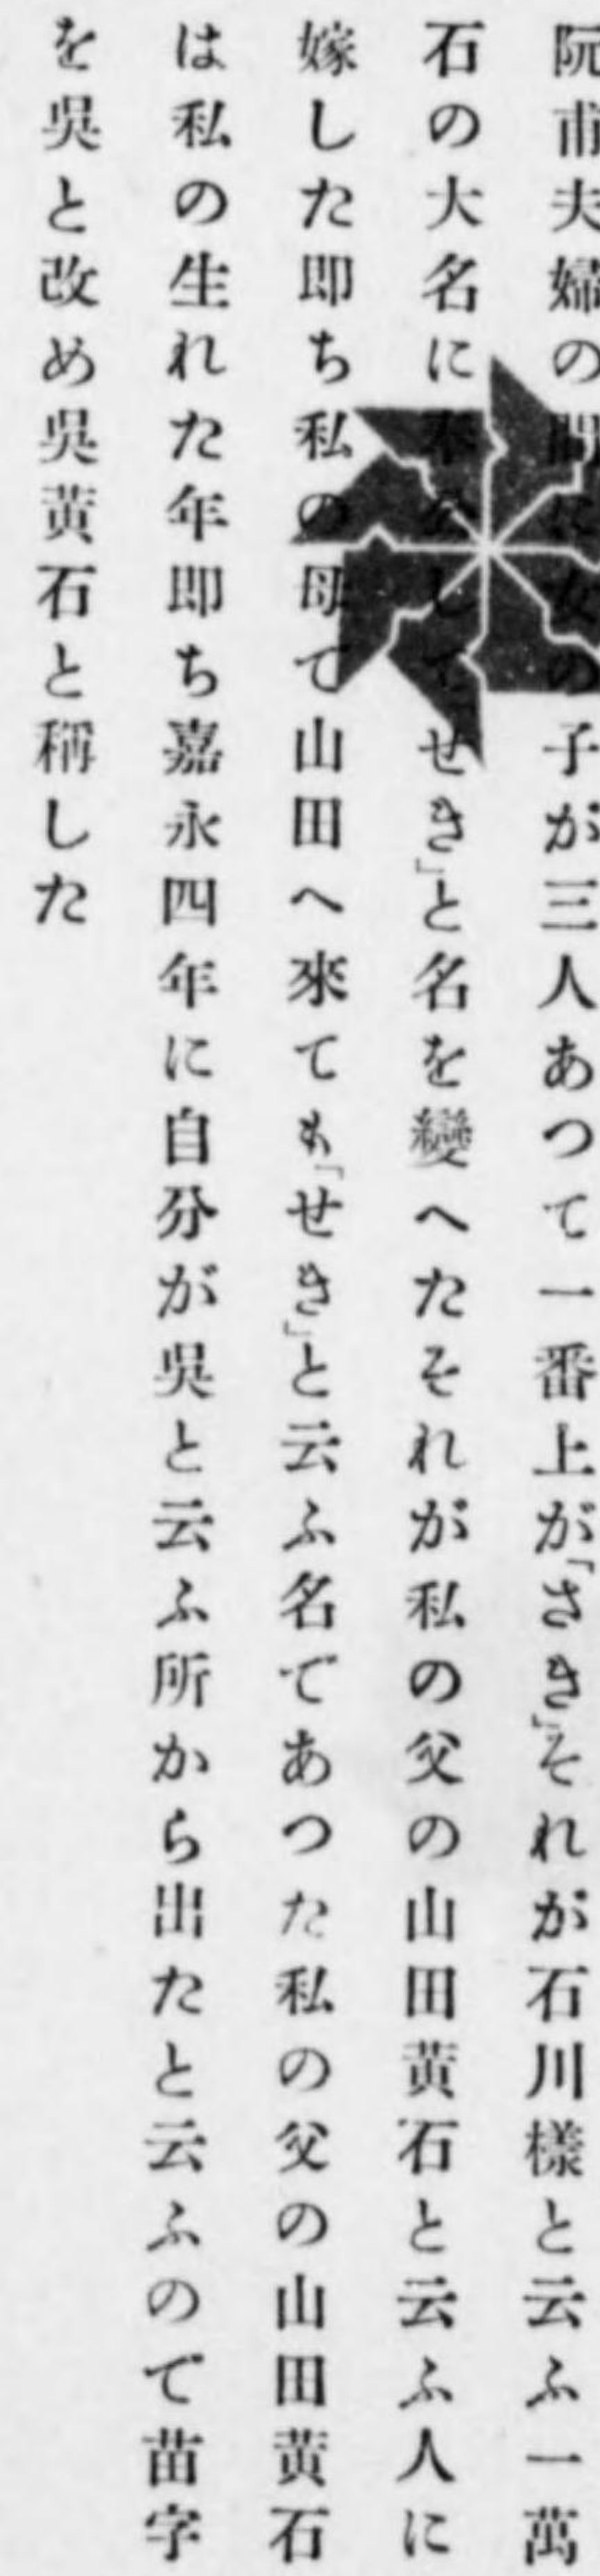 阮甫夫婦の間に女の子が三人あつて一番上が「さき」それが石川様と云ふ一萬
石の大名に奉公してせき」と名を變へたそれが私の父の山田黄石と云ふ人に
嫁した即ち私の母で山田へ來ても「せき」と云ふ名であつた私の父の山田黄石
は私の生れた年即ち嘉永四年に自分が呉と云ふ所から出たと云ふので苗字
を呉と改め呉黄石と稱した